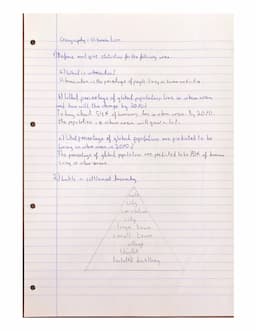 Geography: Urbanisation
1) Define and give statistics for the following areas.
a) What is urbanisation?
Urbanisation is the percentage of people living in towns and cities.
b) What percentage of global population live in urban areas
and how will this change by 2050?
To day, about 54% of humans live in urban areas. By 2050
the population in urban areas will grow a lot.
c) What percentage of global population are predicted to be
living in urban areas in 2050?
The percentage of global population are predicted to be 70% of humans
living in urban areas.
2) Label a settlement hierarchy
city
large town
small town
village
hamlet
isolated dwelling